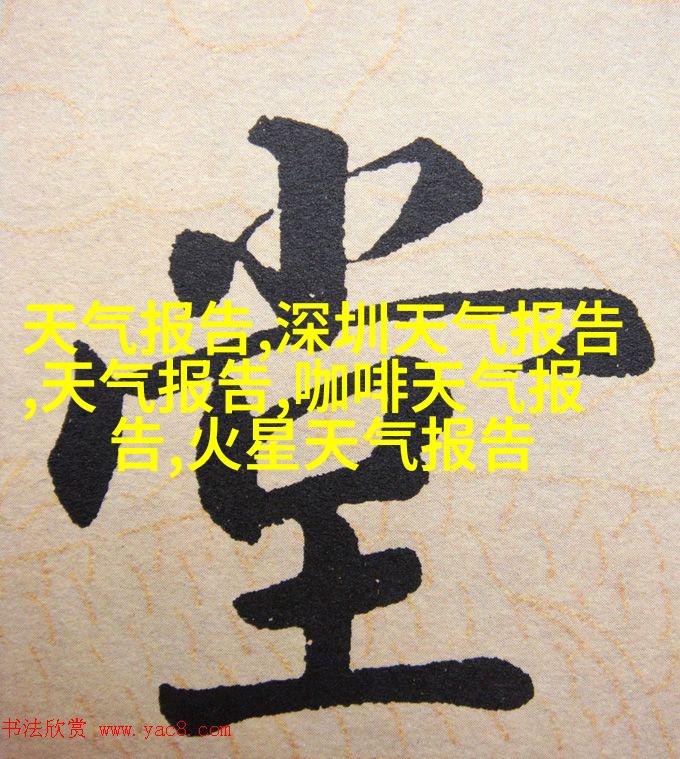 堂
天气报告,深圳天气报告
,天气报告,咖啡天气报
告,火星天气报告
书法欣赏 www.yac8.com